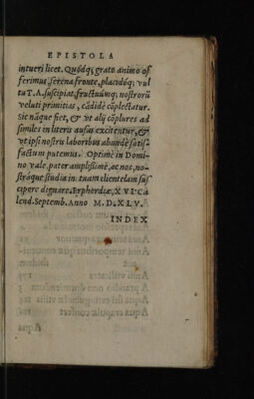 EPISTOLA
intueri licet. Quódq; grato animo of
ferimus, serena fronte, placidóq; vul
tu T. A. suscipiat, fructuúmq; nostrorũ
veluti primitias, cãdidè cõplectatur.
Sic nãque fiet, & vt alij cõplures ad
similes in literis ausus excitentur, &
vt ipsi nostris laboribus abundè satis-
factum putemus. Optimè in Domi-
no vale, pater amplissimè, ac nos, no-
stráque studia in tuam clientelam sus
cipere dignare. Erphordiæ, XVI Ca
lend. Septemb. Anno M. D. XLV.
INDEX